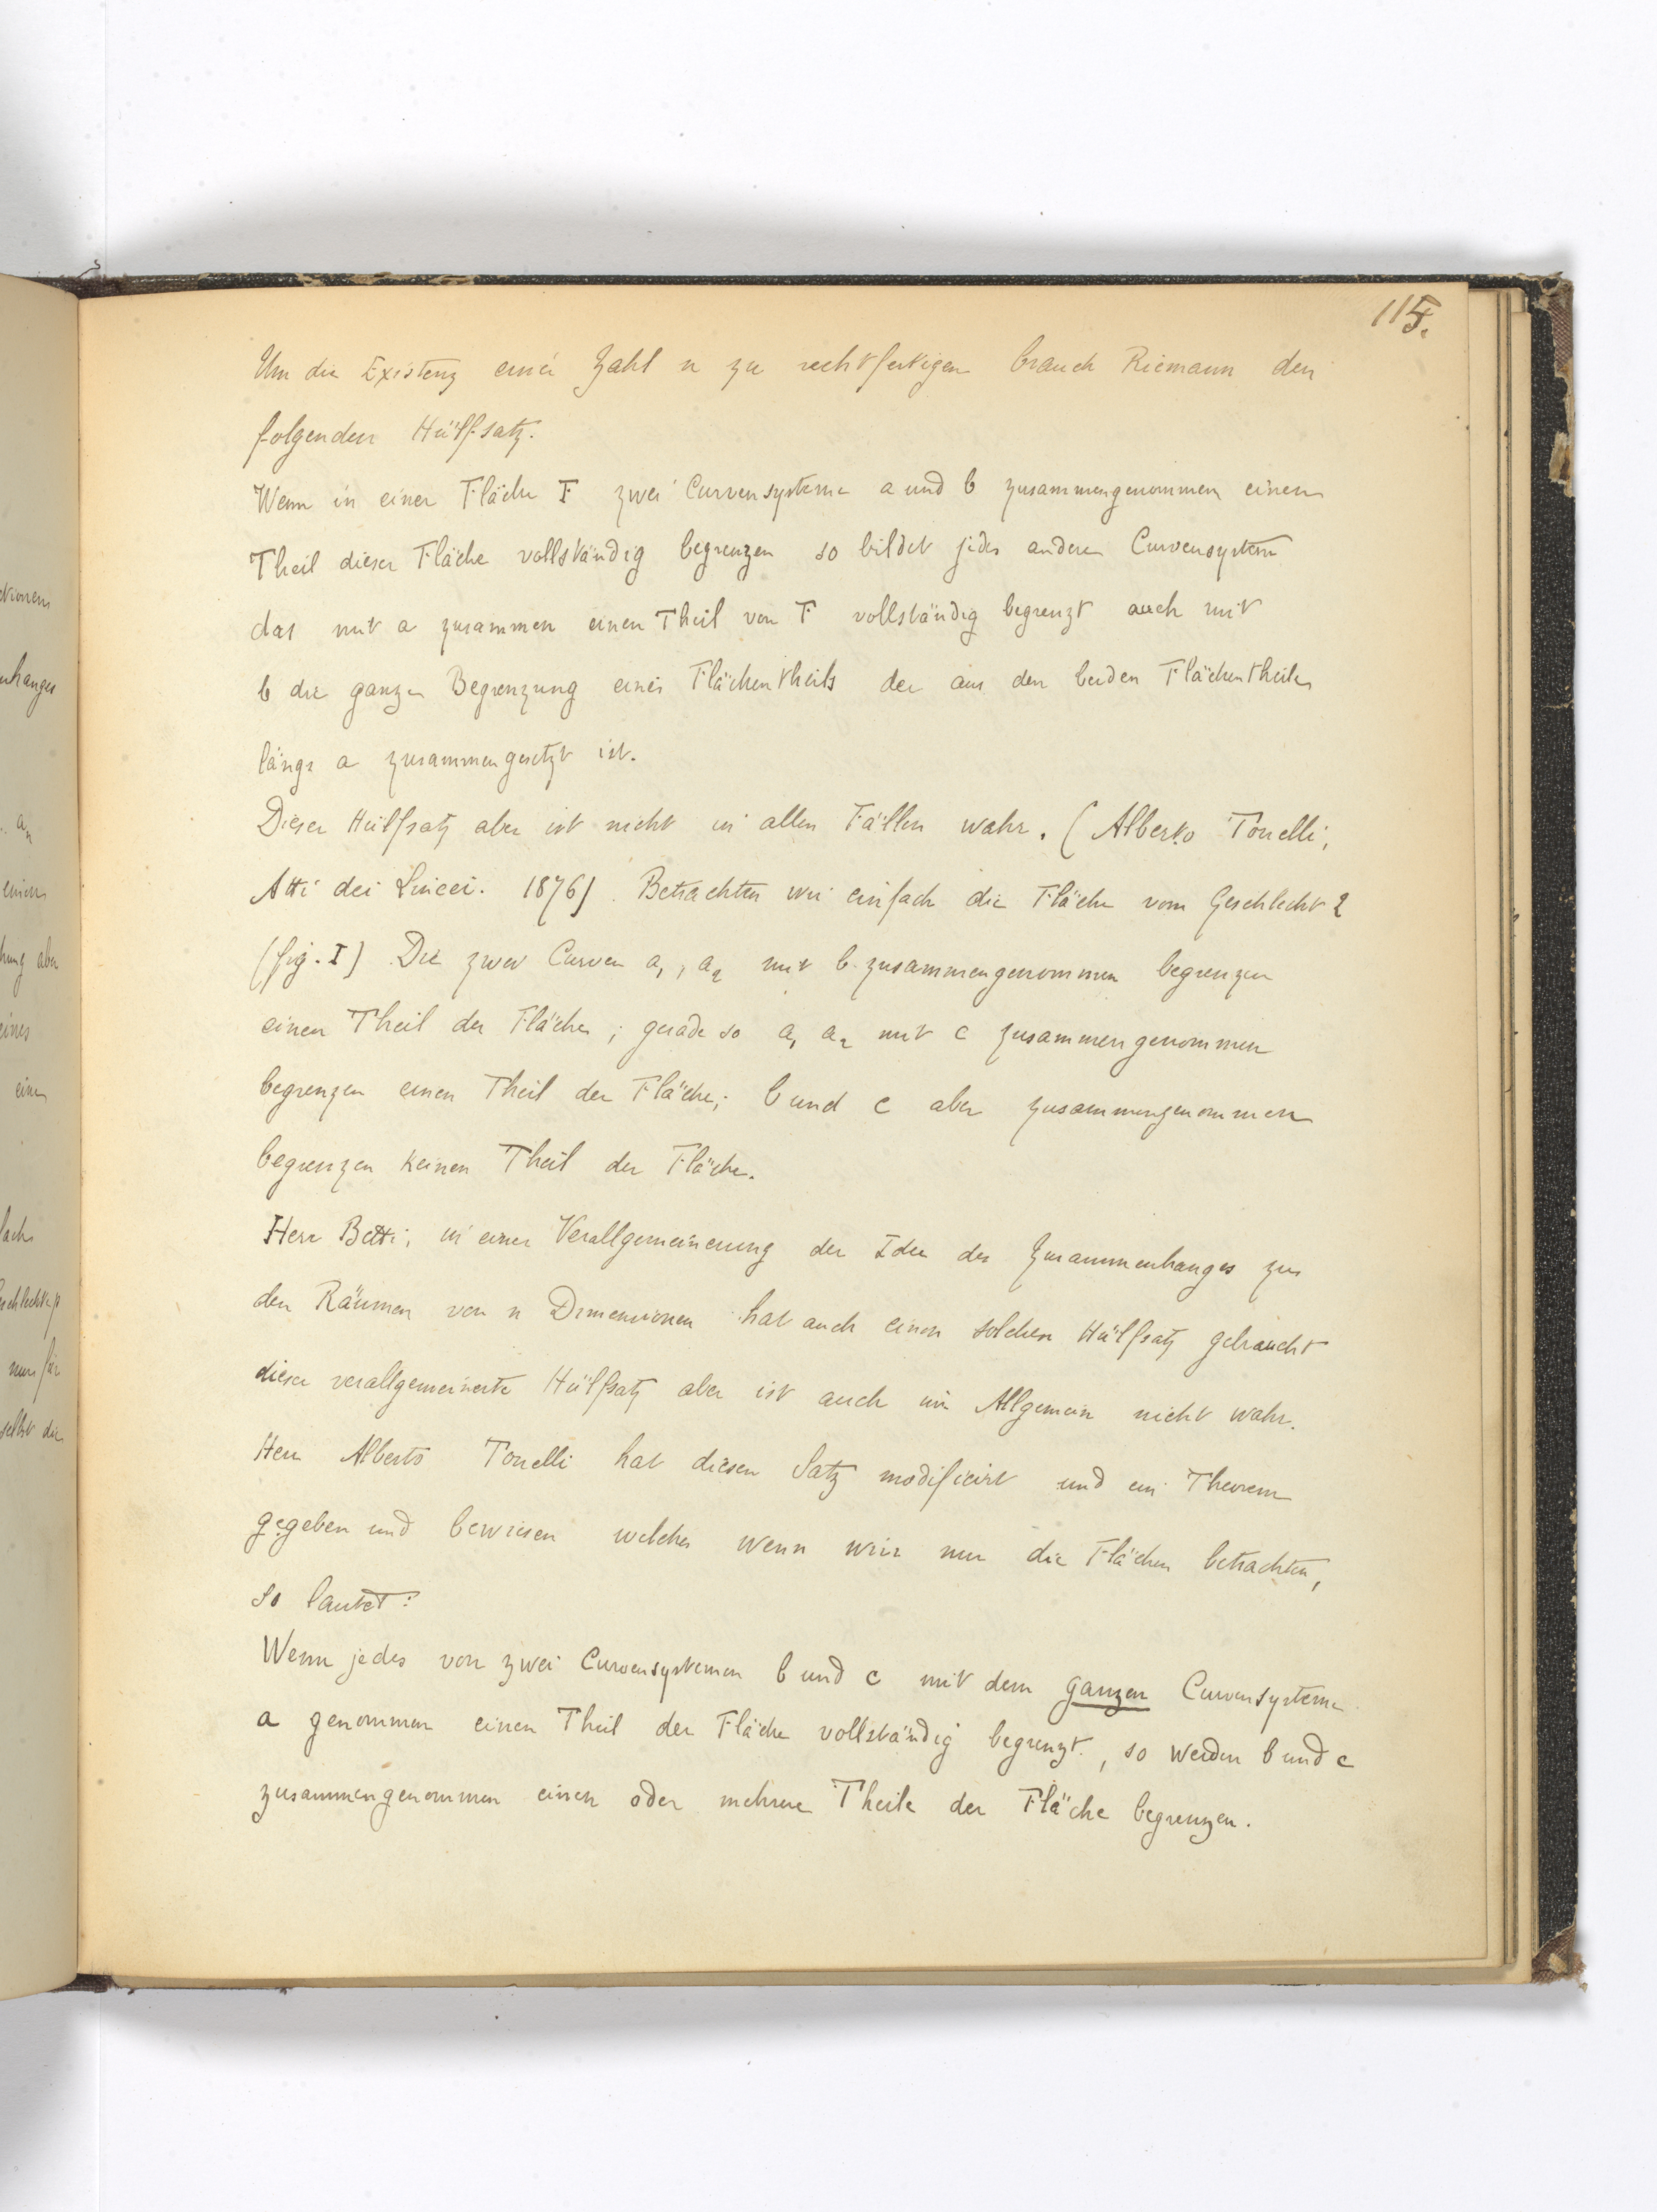 115.
Um die Existenz einer Zahl n zu rechtfertigen brauch Riemann den
folgenden Hülfsatz.
Wenn in einer Fläche F zwei Curvensysteme a und b zusammengenommen einen
Theil dieser Fläche vollständig begrenzen so bildet jedes andere Curvensystem
das mit a zusammen einen Theil von F vollständig begrenzt auch mit
b die ganze Begrenzung eines Flächentheils der aus den beiden Flächentheilen
längs a zusammengesetzt ist.
Dieser Hülfsatz aber ist nicht in allen Fällen wahr. (Alberto Tonelli,
Atti dei Lincei. 1876). Betrachten wir einfach die Fläche vom Geschlecht 2
(fig. I) Die zwei Curven a₁, a₂ mit b zusammengenommen begrenzen
einen Theil der Fläche; gerade so a₁ a₂ mit c zusammengenommen
begrenzen einen Theil der Fläche; b und c aber zusammengenommen
begrenzen keinen Theil der Fläche.
Herr Betti, in einer Verallgemeinerung der Idee des Zusammenhanges zu
den Räumen von n Dimensionen hat auch einen solchen Hülfsatz gebraucht
dieser verallgemeinerte Hülfsatz aber ist auch im Allgemein nicht wahr.
Herr Alberto Tonelli hat diesen Satz modificirt und ein Theorem
gegeben und bewiesen welches wenn wir nur die Flächen betrachten,
so lautet:
Wenn jedes von zwei Curvensystemen b und c mit dem ganzen Curvensysteme
a genommen einen Theil der Fläche vollständig begrenzt, so werden b und c
zusammengenommen einen oder mehrere Theile der Fläche begrenzen.